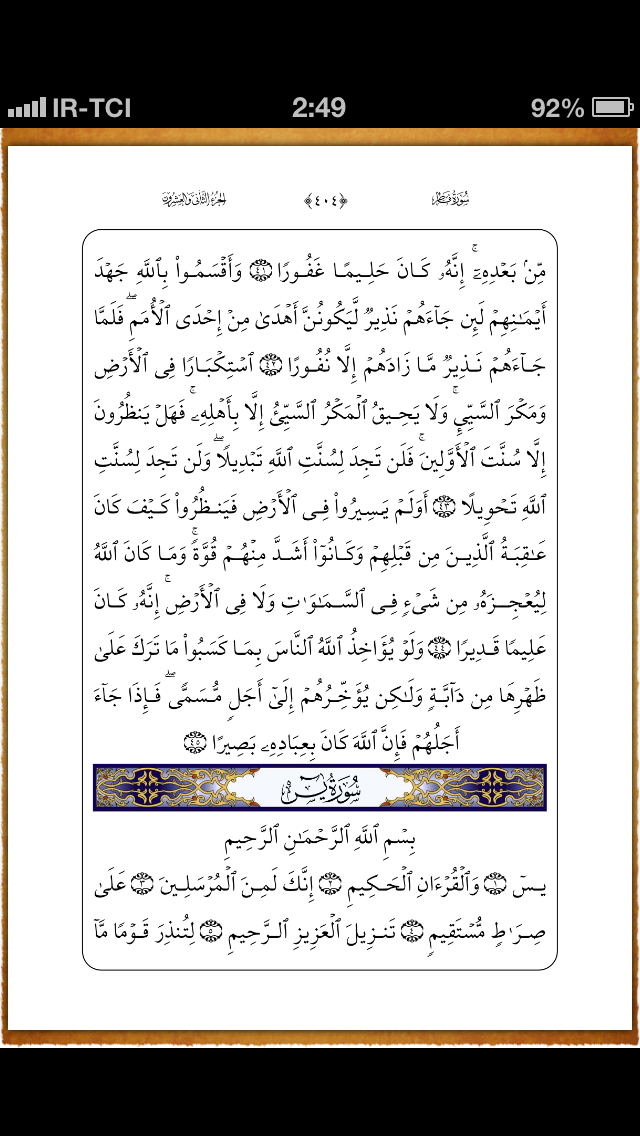 IR-TCI 2:49 92%
سُورَةُ فَاطِر ﴿٤٠٤﴾ الجُزءُ الثَّانِي وَالعِشْرُون
مِّنۢ بَعْدِهِۦٓ ۚ إِنَّهُۥ كَانَ حَلِيمًا غَفُورًا ٤١ وَأَقْسَمُوا۟ بِٱللَّهِ جَهْدَ
أَيْمَـٰنِهِمْ لَئِن جَآءَهُمْ نَذِيرٌ لَّيَكُونُنَّ أَهْدَىٰ مِنْ إِحْدَى ٱلْأُمَمِ ۖ فَلَمَّا
جَآءَهُمْ نَذِيرٌ مَّا زَادَهُمْ إِلَّا نُفُورًا ٤٢ ٱسْتِكْبَارًا فِى ٱلْأَرْضِ
وَمَكْرَ ٱلسَّيِّئِ ۚ وَلَا يَحِيقُ ٱلْمَكْرُ ٱلسَّيِّئُ إِلَّا بِأَهْلِهِۦ ۚ فَهَلْ يَنظُرُونَ
إِلَّا سُنَّتَ ٱلْأَوَّلِينَ ۚ فَلَن تَجِدَ لِسُنَّتِ ٱللَّهِ تَبْدِيلًا ۖ وَلَن تَجِدَ لِسُنَّتِ
ٱللَّهِ تَحْوِيلًا ٤٣ أَوَلَمْ يَسِيرُوا۟ فِى ٱلْأَرْضِ فَيَنظُرُوا۟ كَيْفَ كَانَ
عَـٰقِبَةُ ٱلَّذِينَ مِن قَبْلِهِمْ وَكَانُوٓا۟ أَشَدَّ مِنْهُمْ قُوَّةً ۚ وَمَا كَانَ ٱللَّهُ
لِيُعْجِزَهُۥ مِن شَىْءٍ فِى ٱلسَّمَـٰوَٰتِ وَلَا فِى ٱلْأَرْضِ ۚ إِنَّهُۥ كَانَ
عَلِيمًا قَدِيرًا ٤٤ وَلَوْ يُؤَاخِذُ ٱللَّهُ ٱلنَّاسَ بِمَا كَسَبُوا۟ مَا تَرَكَ عَلَىٰ
ظَهْرِهَا مِن دَآبَّةٍ وَلَـٰكِن يُؤَخِّرُهُمْ إِلَىٰٓ أَجَلٍ مُّسَمًّى ۖ فَإِذَا جَآءَ
أَجَلُهُمْ فَإِنَّ ٱللَّهَ كَانَ بِعِبَادِهِۦ بَصِيرًۢا ٤٥
سُورَةُ يسٓ
بِسْمِ ٱللَّهِ ٱلرَّحْمَـٰنِ ٱلرَّحِيمِ
يسٓ ١ وَٱلْقُرْءَانِ ٱلْحَكِيمِ ٢ إِنَّكَ لَمِنَ ٱلْمُرْسَلِينَ ٣ عَلَىٰ
صِرَٰطٍ مُّسْتَقِيمٍ ٤ تَنزِيلَ ٱلْعَزِيزِ ٱلرَّحِيمِ ٥ لِتُنذِرَ قَوْمًا مَّآ